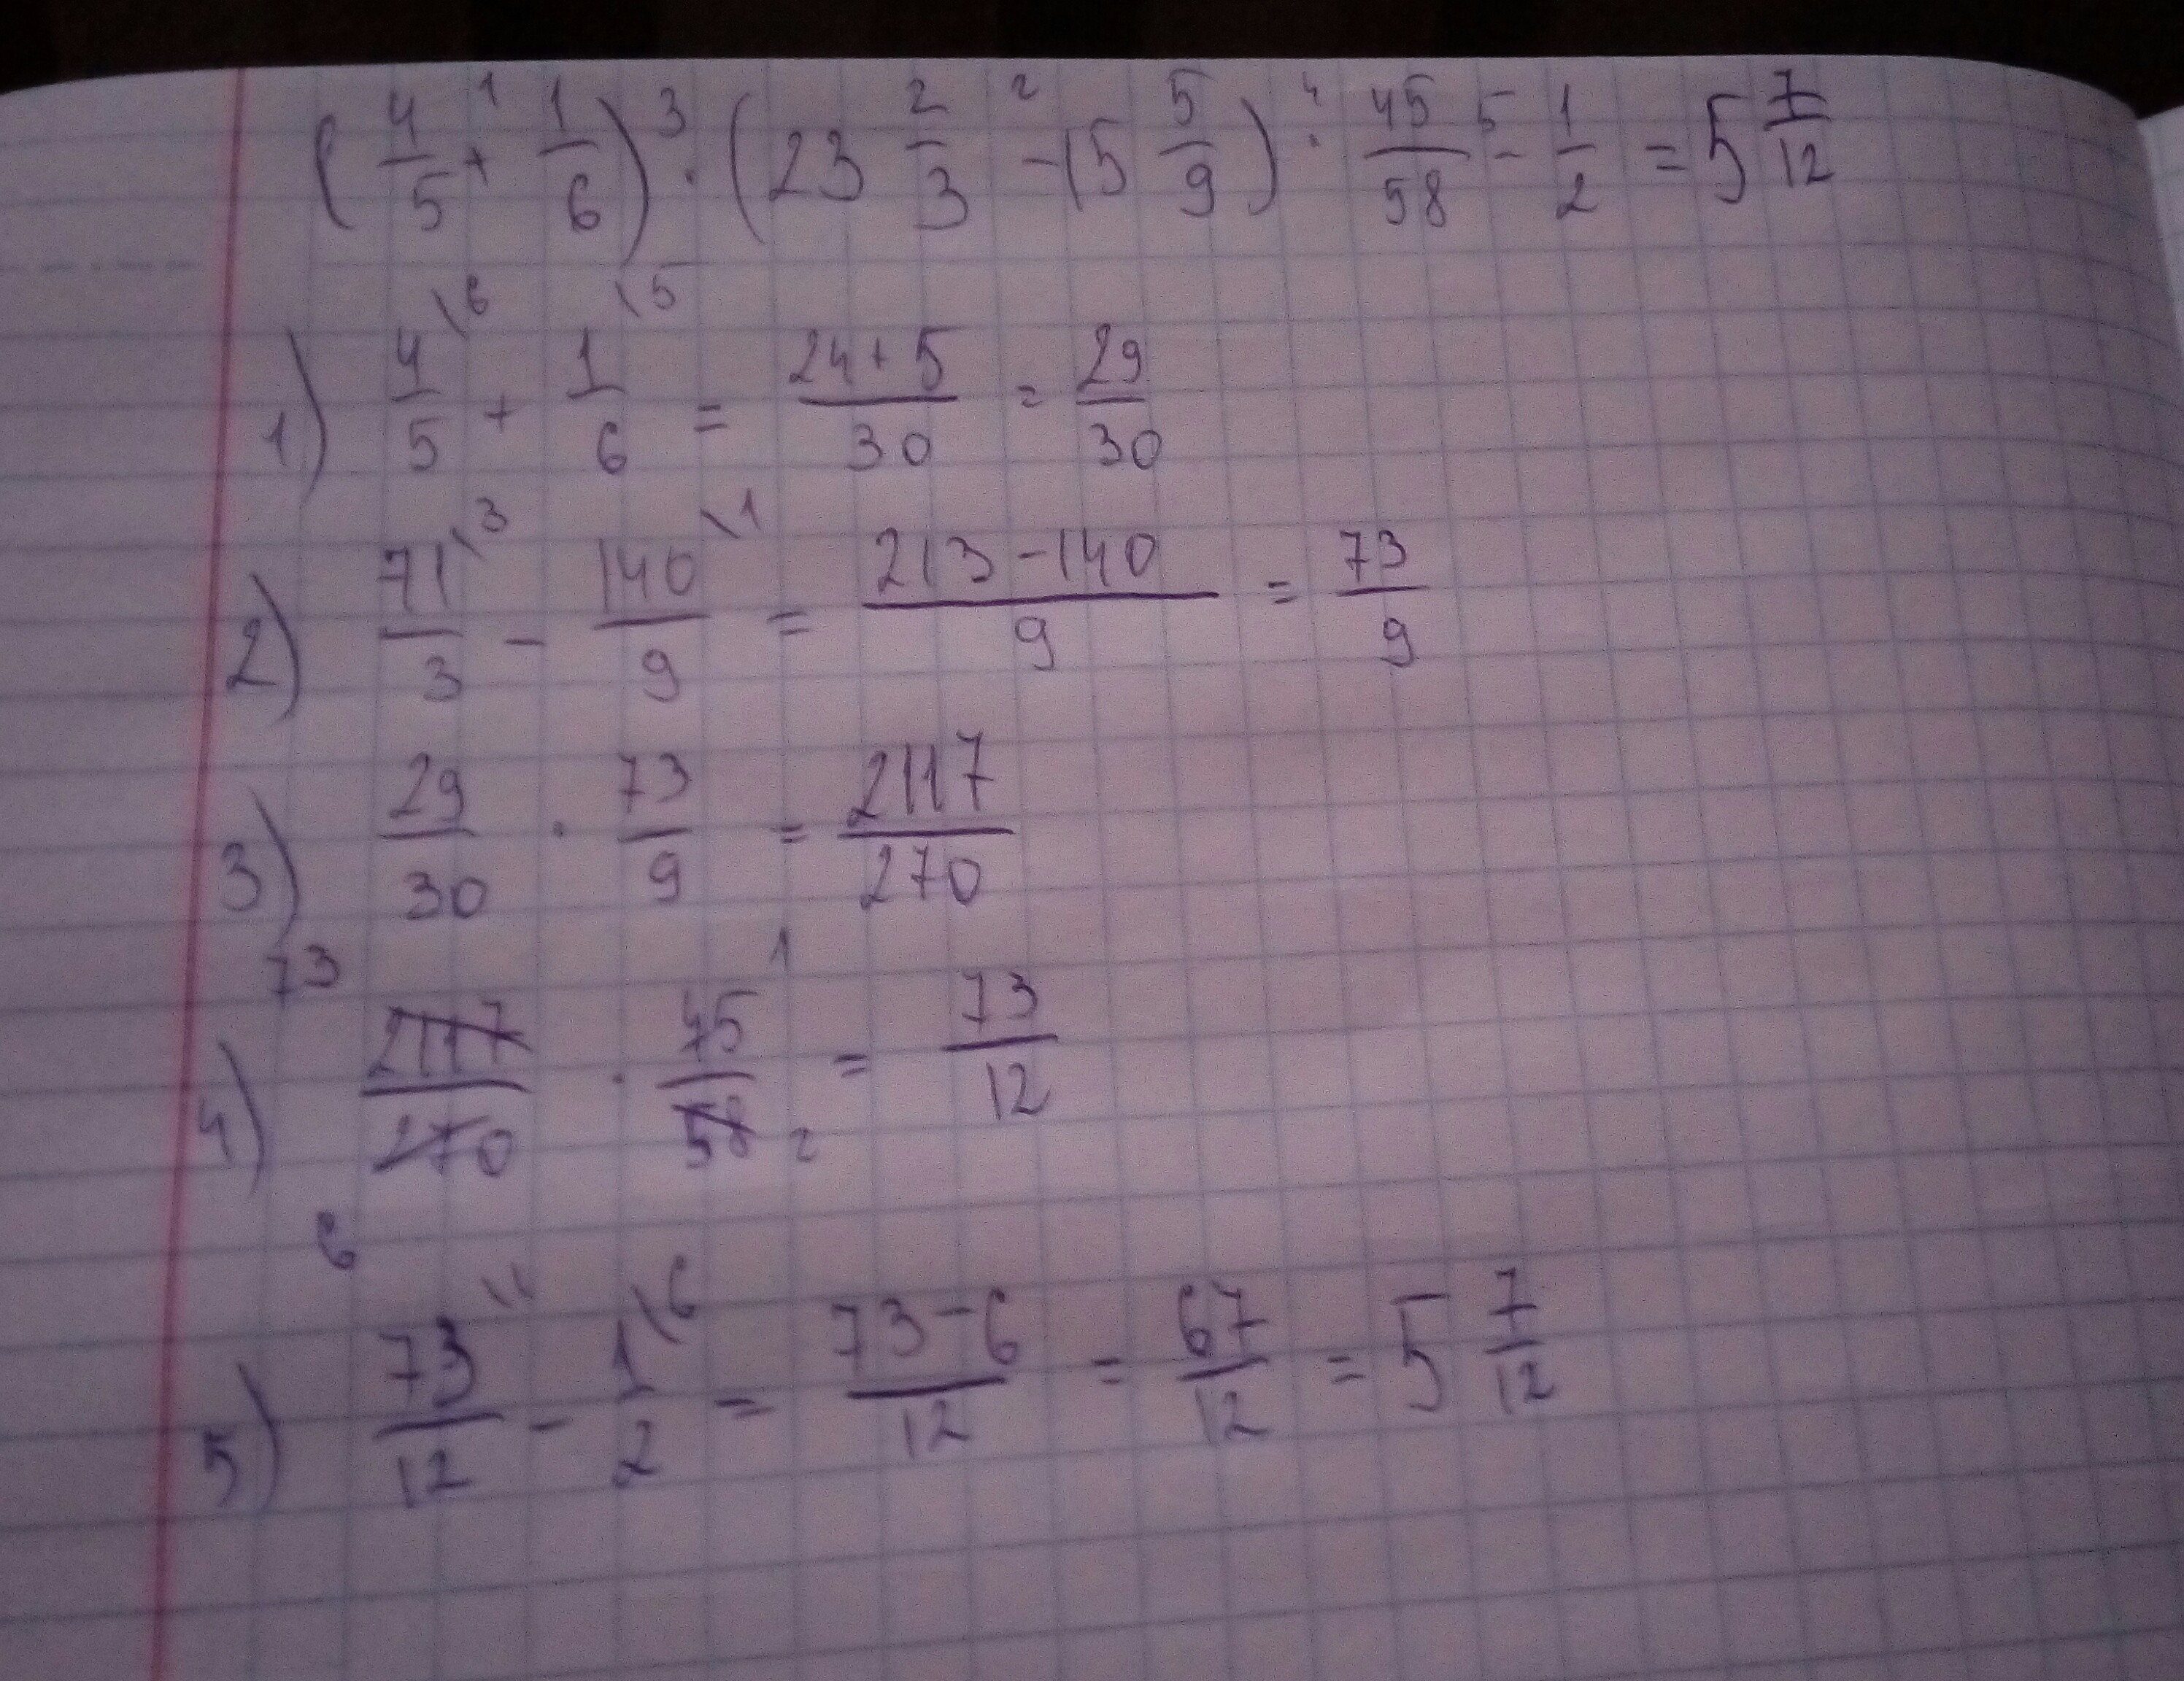 (4/5 ¹+ 1/6) ³· (23 2/3 ²- 15 5/9) ⁴· 45/58 ⁵- 1/2 = 5 7/12
1) 4/5 \6 + 1/6 \5 = 24+5/30 = 29/30
2) 71/3 \3 - 140/9 \1 = 213-140/9 = 73/9
3) 29/30 · 73/9 = 2117/270
4) 73 2117/270 6 · 45 1/58 2 = 73/12
5) 73/12 \1 - 1/2 \6 = 73-6/12 = 67/12 = 5 7/12